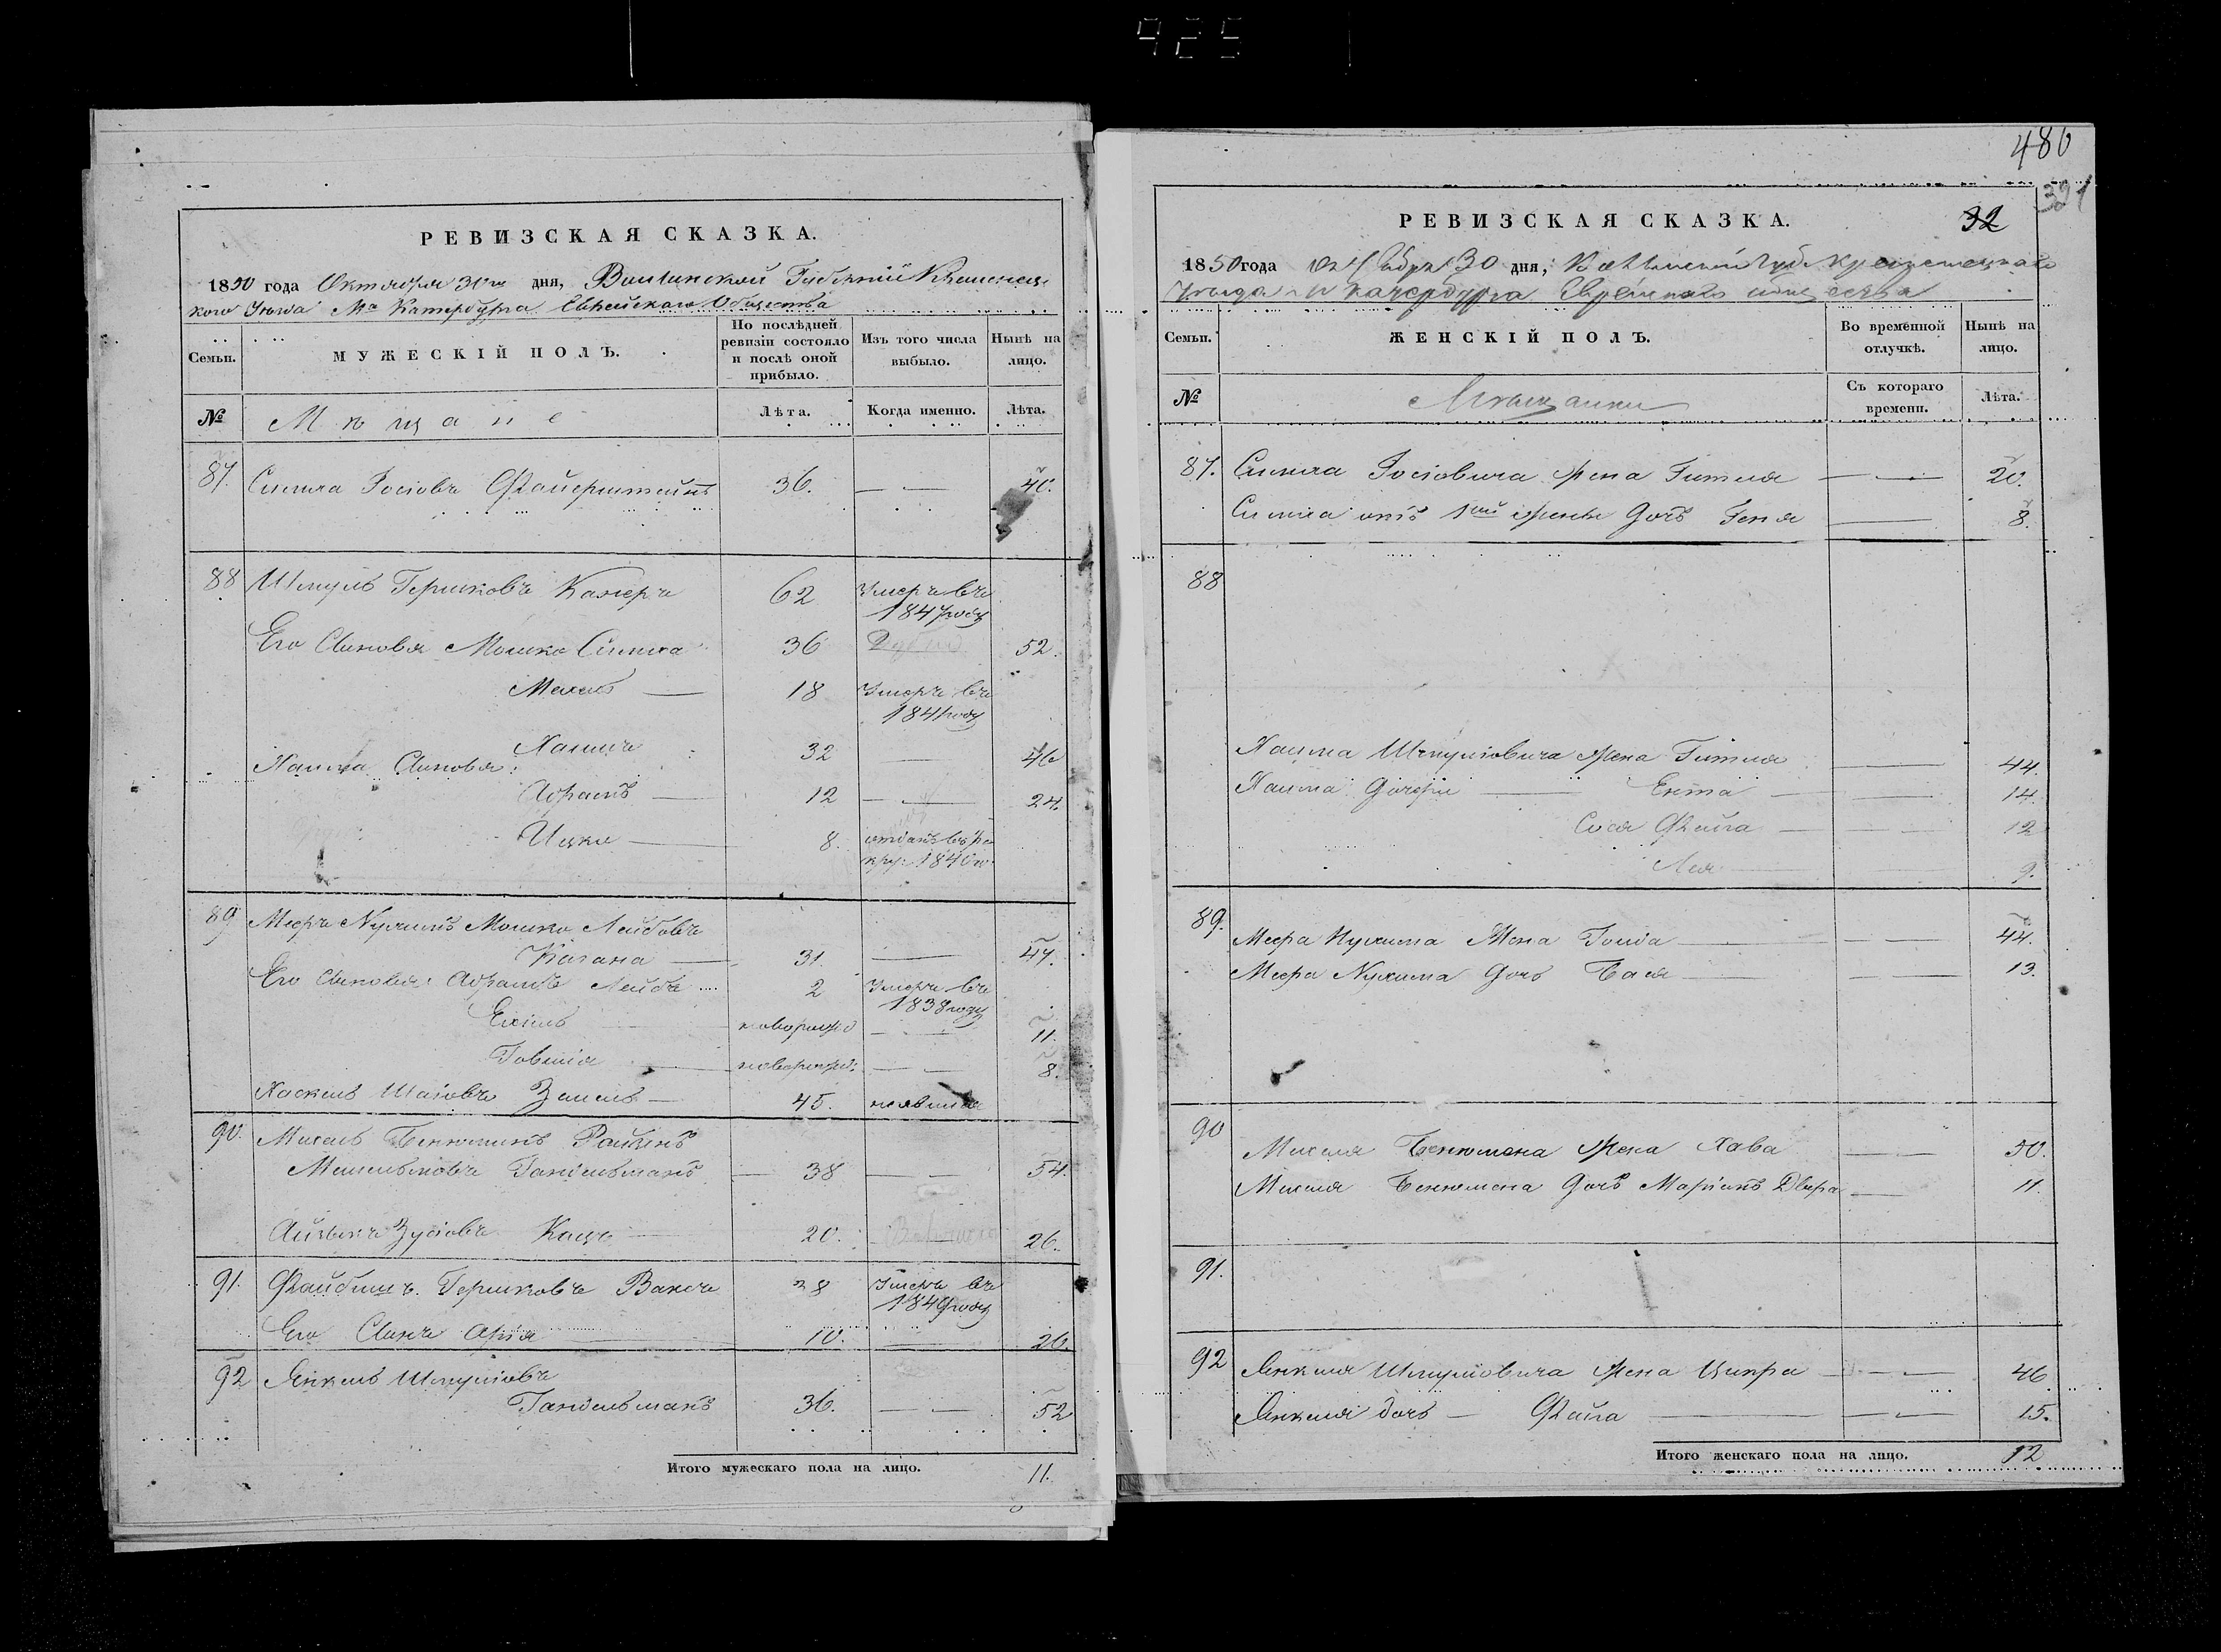 425
РЕВИЗСКАЯ СКАЗКА.
1850 года Октября 30го дня, Волынской Губерніи Кременец-
кого Уезда Мка Катербурга Еврейского Общества
Семьи.
МУЖЕСКІЙ ПОЛЪ.
По послѣдней ревизіи состояло и послѣ оной прибыло.
Изъ того числа выбыло.
Нынѣ на лицо.
№
Мѣщане
Лѣта.
Когда именно.
Лѣта.
87. Симха Іосіовъ Файерштейнъ 36. 40.
88 Шмуль Гершковъ Камеръ 62 Умеръ въ
1847 году
Его Сыновья Мошко Симха 36 52.
Мехель 18 Умеръ въ
1841 году
Хаимъ 32 46
Хаима Сыновья:
Абрамъ 12 24.
Ицко 8. отданъ въ ре
кру: 1840 го
89 Мееръ Нухимъ Мошко Лейбовъ
Кагана 31 47.
Его Сыновья: Абрамъ Лейба 2 Умеръ въ
1838 году
Ехіль новорожд 11.
Говшія новорожд: 8.
Хаскель Шаіовъ 45.
90. Михель Бенюминъ
Гандельманъ 38 54.
Айзыкъ Зусіовъ Кацъ 20. 26.
91. Файбишъ Гершковъ Ваксъ 38 Умеръ въ
1849 году
Его Сынъ Арія 10. 26.
92 Янкель Шмуліовъ
Гандельманъ 36. 52
Итого мужескаго пола на лицо. 11.
480
391
32
РЕВИЗСКАЯ СКАЗКА.
1850 года Октября 30 дня, Волынской Губ. Кременецкаго
Уезда М Катербурга Еврейскаго общества
Семьи.
ЖЕНСКІЙ ПОЛЪ.
Во временной отлучкѣ.
Нынѣ на лицо.
№
Мѣщанки
Съ котораго времени.
Лѣта.
87. Симха Іосіовича жена Гитля 20.
Симха отъ 1ой жены Дочь Геня 8.
88
Хаима Шмуліовича Жена Гитля 44.
Хаима Дочери Ента 14.
Сося Файга 12
Лея 9.
89. Меера Нухима Жена Голда 44.
Меера Нухима Дочь Бася 13.
90 Михеля Бенюмена Жена Хава 50.
Михеля Бенюмена Дочь Маріямъ Двыра 11.
91.
92 Янкеля Шмуліовича Жена Ципра 46
Янкеля дочь Файга 15.
Итого женскаго пола на лицо. 12